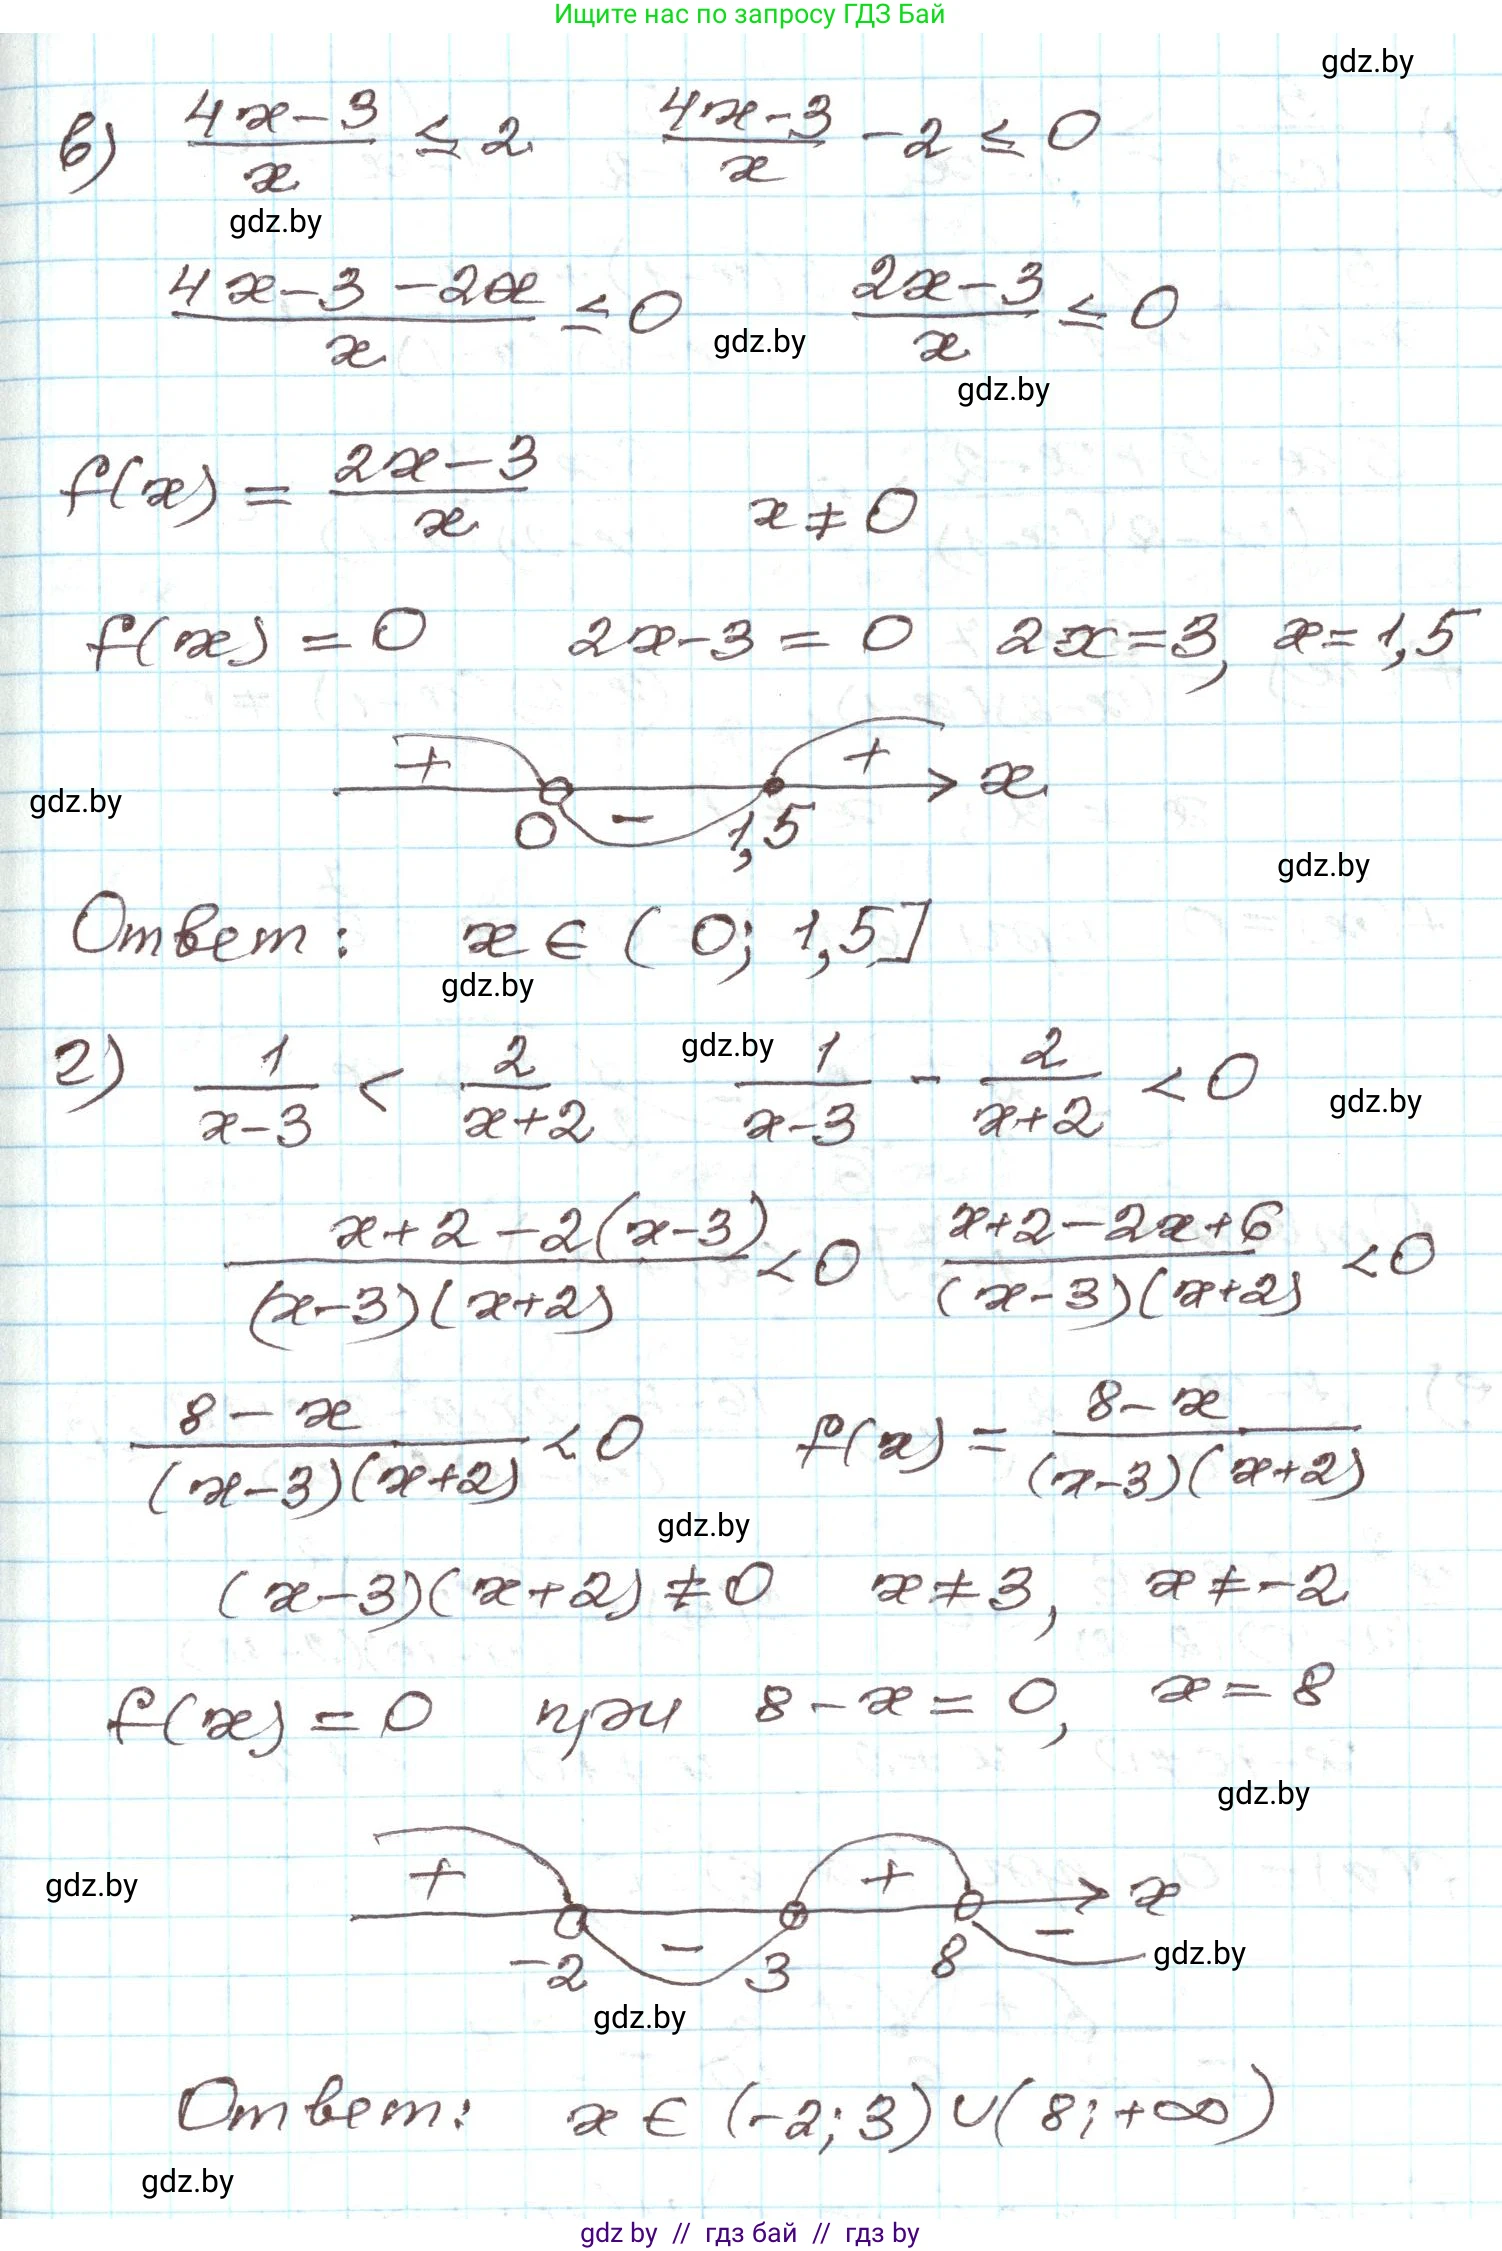 Ищите нас по запросу ГДЗ Бай
gdz.by
в) (4x-3)/x ≤ 2 (4x-3)/x - 2 ≤ 0
gdz.by
(4x-3-2x)/x ≤ 0 (2x-3)/x ≤ 0
gdz.by
gdz.by
f(x) = (2x-3)/x x ≠ 0
f(x) = 0 2x-3 = 0 2x = 3, x = 1,5
+ - + x
gdz.by
0 1,5
gdz.by
Ответ: x ∈ (0; 1,5]
gdz.by
г) 1/(x-3) < 2/(x+2) 1/(x-3) - 2/(x+2) < 0
gdz.by
gdz.by
(x+2-2(x-3))/((x-3)(x+2)) < 0 (x+2-2x+6)/((x-3)(x+2)) < 0
(8-x)/((x-3)(x+2)) < 0 f(x) = (8-x)/((x-3)(x+2))
gdz.by
(x-3)(x+2) ≠ 0 x ≠ 3, x ≠ -2
f(x) = 0 при 8-x = 0, x = 8
gdz.by
gdz.by
+ - + - x
-2 3 8
gdz.by
gdz.by
Ответ: x ∈ (-2; 3) ∪ (8; +∞)
gdz.by
gdz by // гдз бай // гдз by